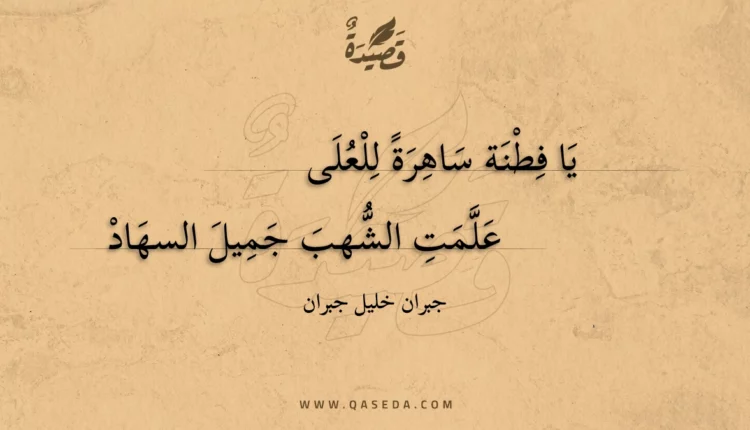 قَصِيْدَةٌ
يَا فِطْنَة سَاهِرَةً لِلْعُلَى
عَلَّمَتِ الشُّهبَ جَمِيلَ السهَادْ
جبران خليل جبران
WWW.QASEDA.COM